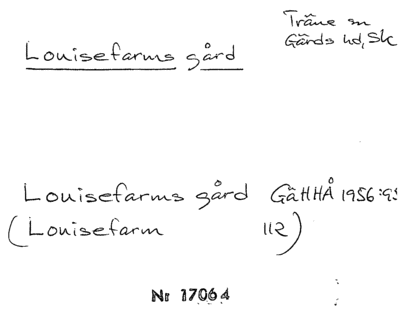 Träne sn
Gärds hd, Sk
Louisefarms gård
Louisefarms gård GäHHÅ 1956:95
(Louisefarm 112)
Nr 17064